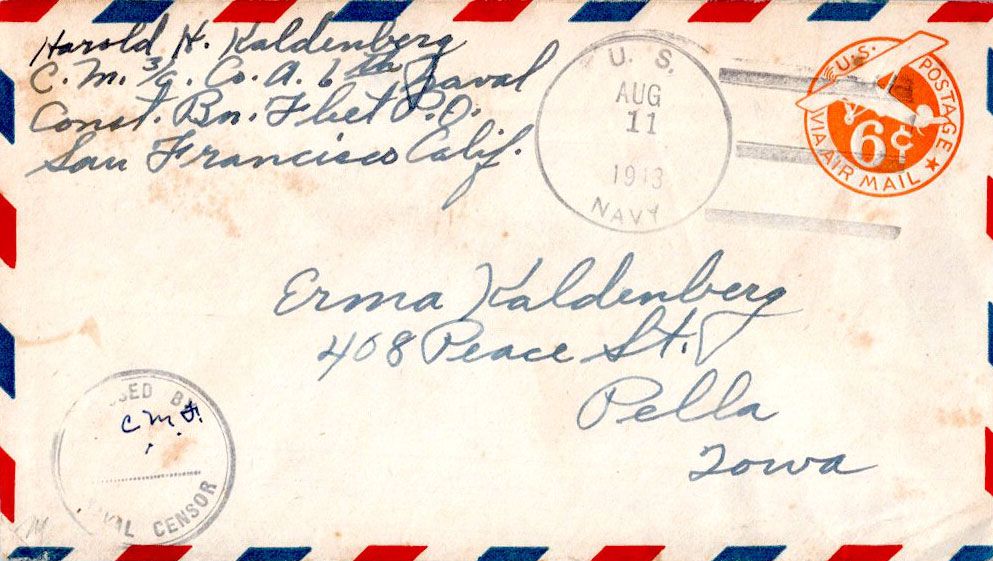 Harold H. Kaldenberg
C. M. 3/c. Co. A. 6th Naval
Const. Bn. Fleet P.O.
San Francisco Calif.
U. S.
AUG
11
1943
NAVY
U.S. POSTAGE
6¢
VIA AIR MAIL
Erma Kaldenberg
408 Peace St.
Pella
Iowa
SED BY
C M F.
NAVAL CENSOR